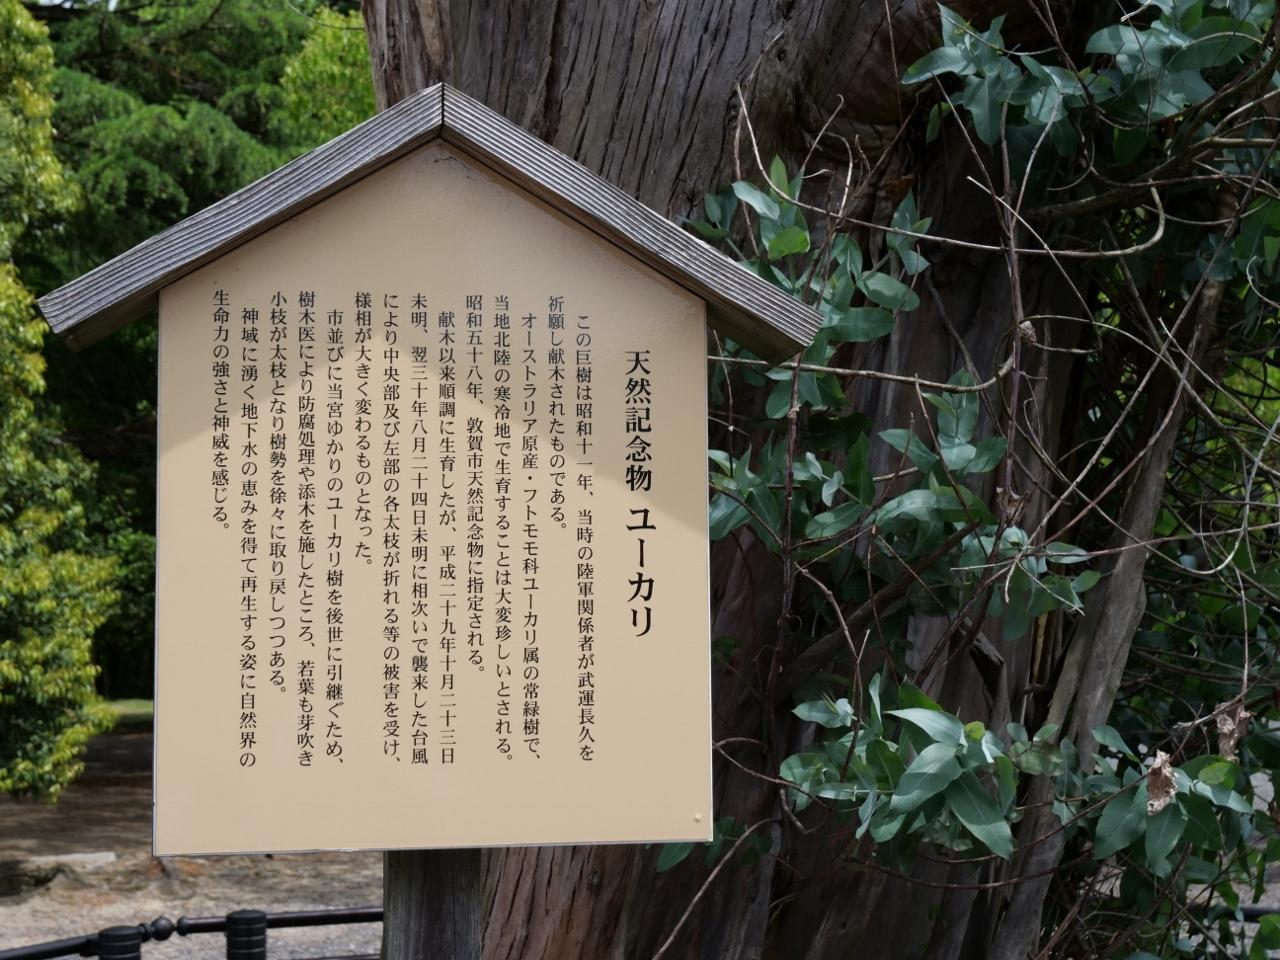 天然記念物 ユーカリ
この巨樹は昭和十一年、当時の陸軍関係者が武運長久を
祈願し献木されたものである。
オーストラリア原産・フトモモ科ユーカリ属の常緑樹で、
当地北陸の寒冷地で生育することは大変珍しいとされる。
昭和五十八年、敦賀市天然記念物に指定される。
献木以来順調に生育したが、平成二十九年十月二十三日
未明、翌三十年八月二十四日未明に相次いで襲来した台風
により中央部及び左部の各太枝が折れる等の被害を受け、
様相が大きく変わるものとなった。
市並びに当宮ゆかりのユーカリ樹を後世に引継ぐため、
樹木医により防腐処理や添木を施したところ、若葉も芽吹き
小枝が太枝となり樹勢を徐々に取り戻しつつある。
神域に湧く地下水の恵みを得て再生する姿に自然界の
生命力の強さと神威を感じる。